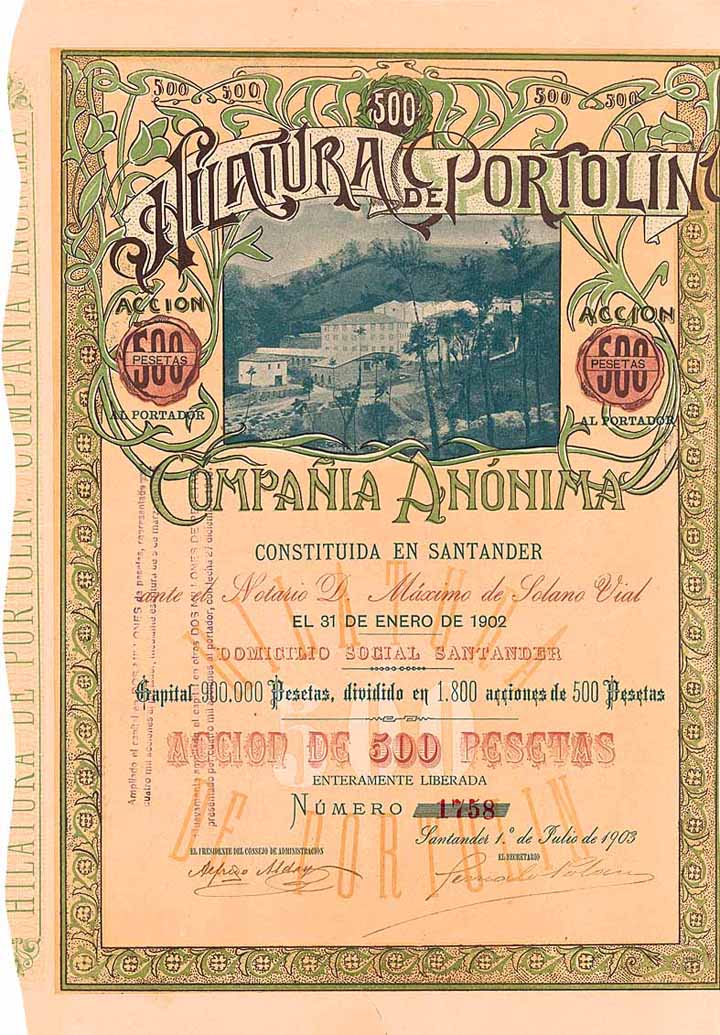 500 500 500 500 500
HILATURA DE PORTOLIN
ACCION
500
PESETAS
AL PORTADOR
ACCION
500
PESETAS
AL PORTADOR
COMPAÑIA ANÓNIMA
CONSTITUIDA EN SANTANDER
ante el Notario D. Máximo de Solano Vial
EL 31 DE ENERO DE 1902
DOMICILIO SOCIAL SANTANDER
Capital 900.000 Pesetas, dividido en 1.800 acciones de 500 Pesetas
ACCION DE 500 PESETAS
ENTERAMENTE LIBERADA
NÚMERO 1758
Santander 1.º de Julio de 1903
EL PRESIDENTE DEL CONSEJO DE ADMINISTRACION
EL SECRETARIO
Alfredo Alday
HILATURA
500
DE PORTOLIN
HILATURA DE PORTOLIN. COMPAÑIA ANÓNIMA
Ampliado el capital
cuatro mil acciones
Nuevamente